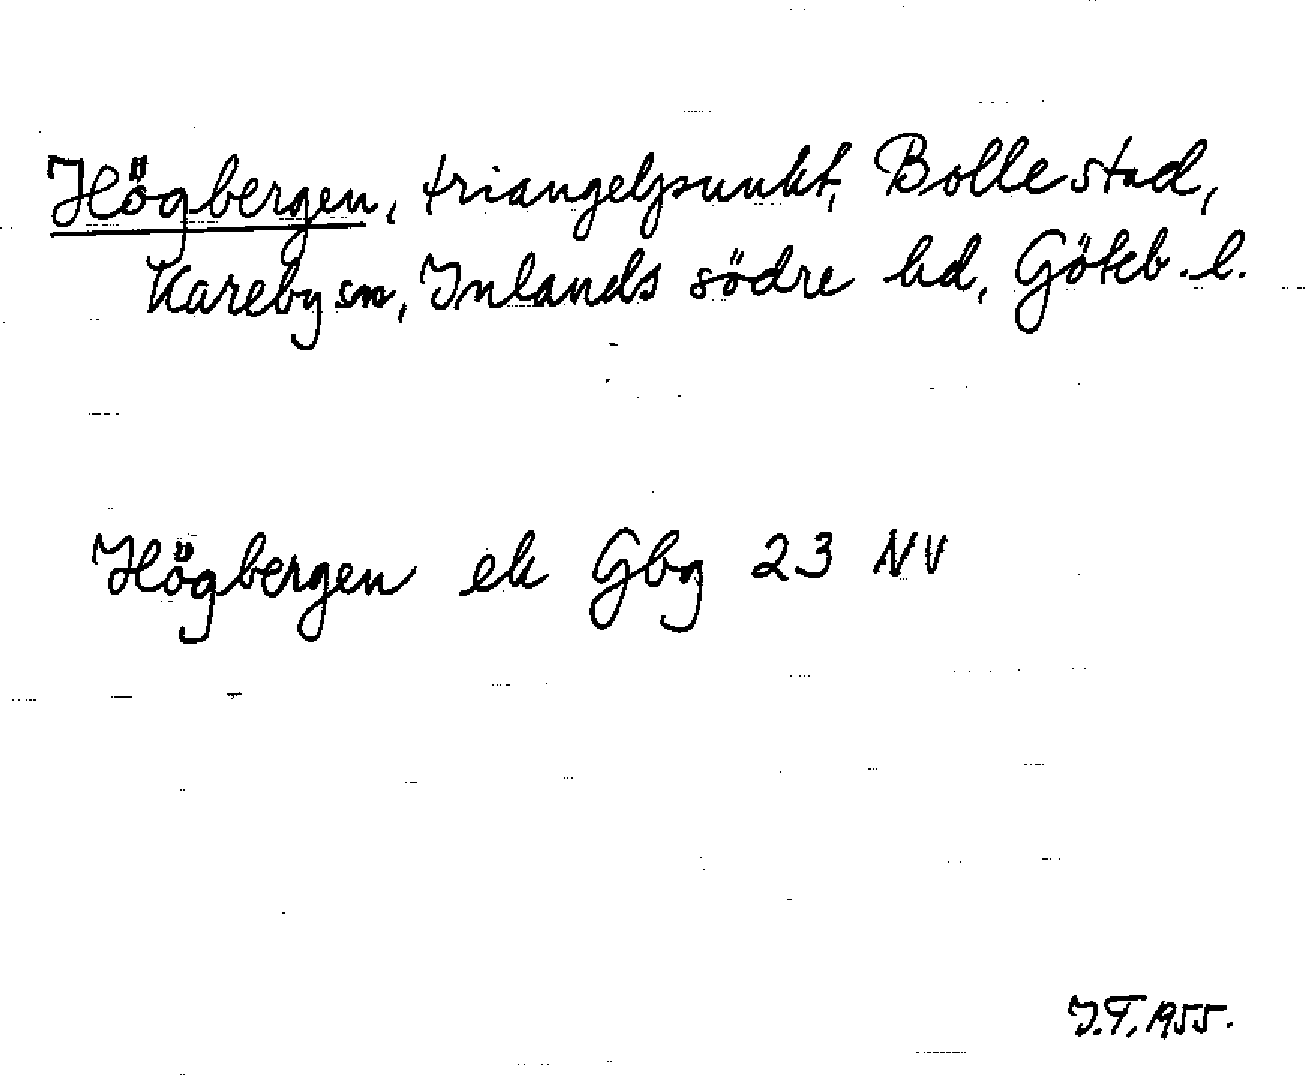 Högbergen, triangelpunkt, Bollestad,
Kareby sn, Inlands södre hd, Göteb. l.
Högbergen ek Gbg 23 NV
I.T. 1955.